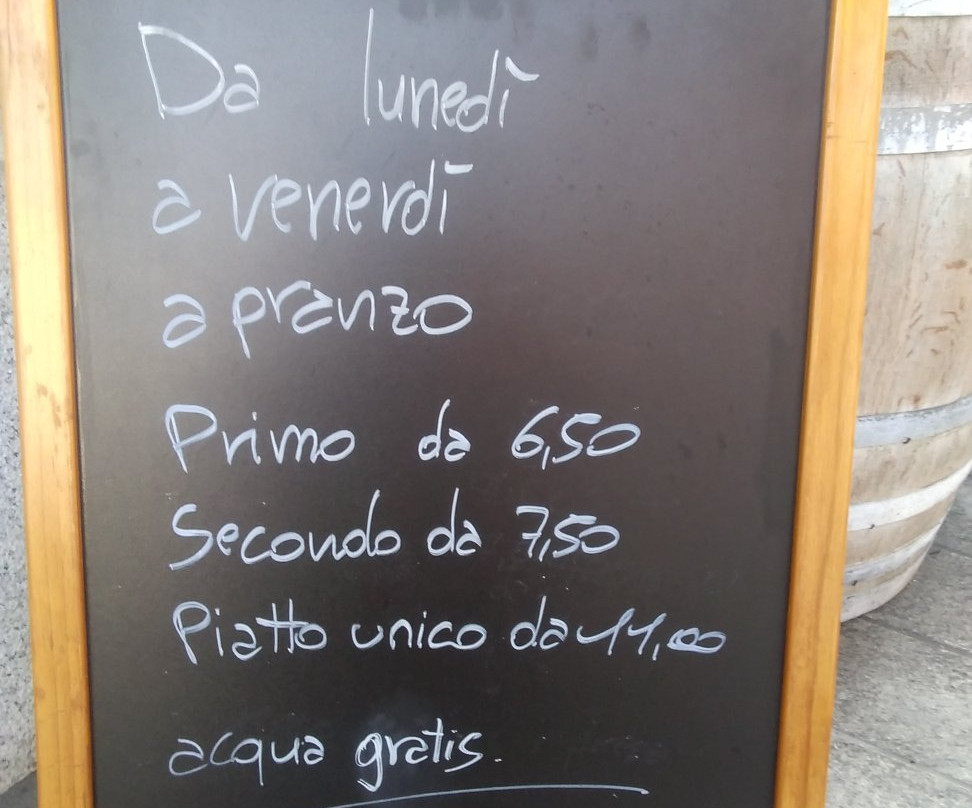 Da lunedì
a venerdì
a pranzo
Primo da 6,50
Secondo da 7,50
Piatto unico da 11,00
acqua gratis.